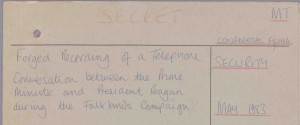 SECRET
MT
CONFIDENTIAL FILING
Forged Recording of a Telephone
Conversation between the Prime
Minister and President Reagan
during the Falklands Campaign
SECURITY
MAY 1983